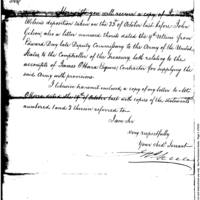 you will receive a copy of
deposition taken on the 23d of October last before John
Gibson; also a letter marked third dated the 9th
Edward Day late Deputy Commissary to the Army of the United
States to the Comptroller of the Treasury both relating to the
accounts of James O'Hara Esquire Contractor for supplying the
said Army with provisions
I likewise herewith enclosed a copy of my letter to Mr
O'Hara dated the 19th of October last with copies of the statements
numbered 1 and 2 therein referred to.
I am Sir
Very respectfully
Your obdt Servant